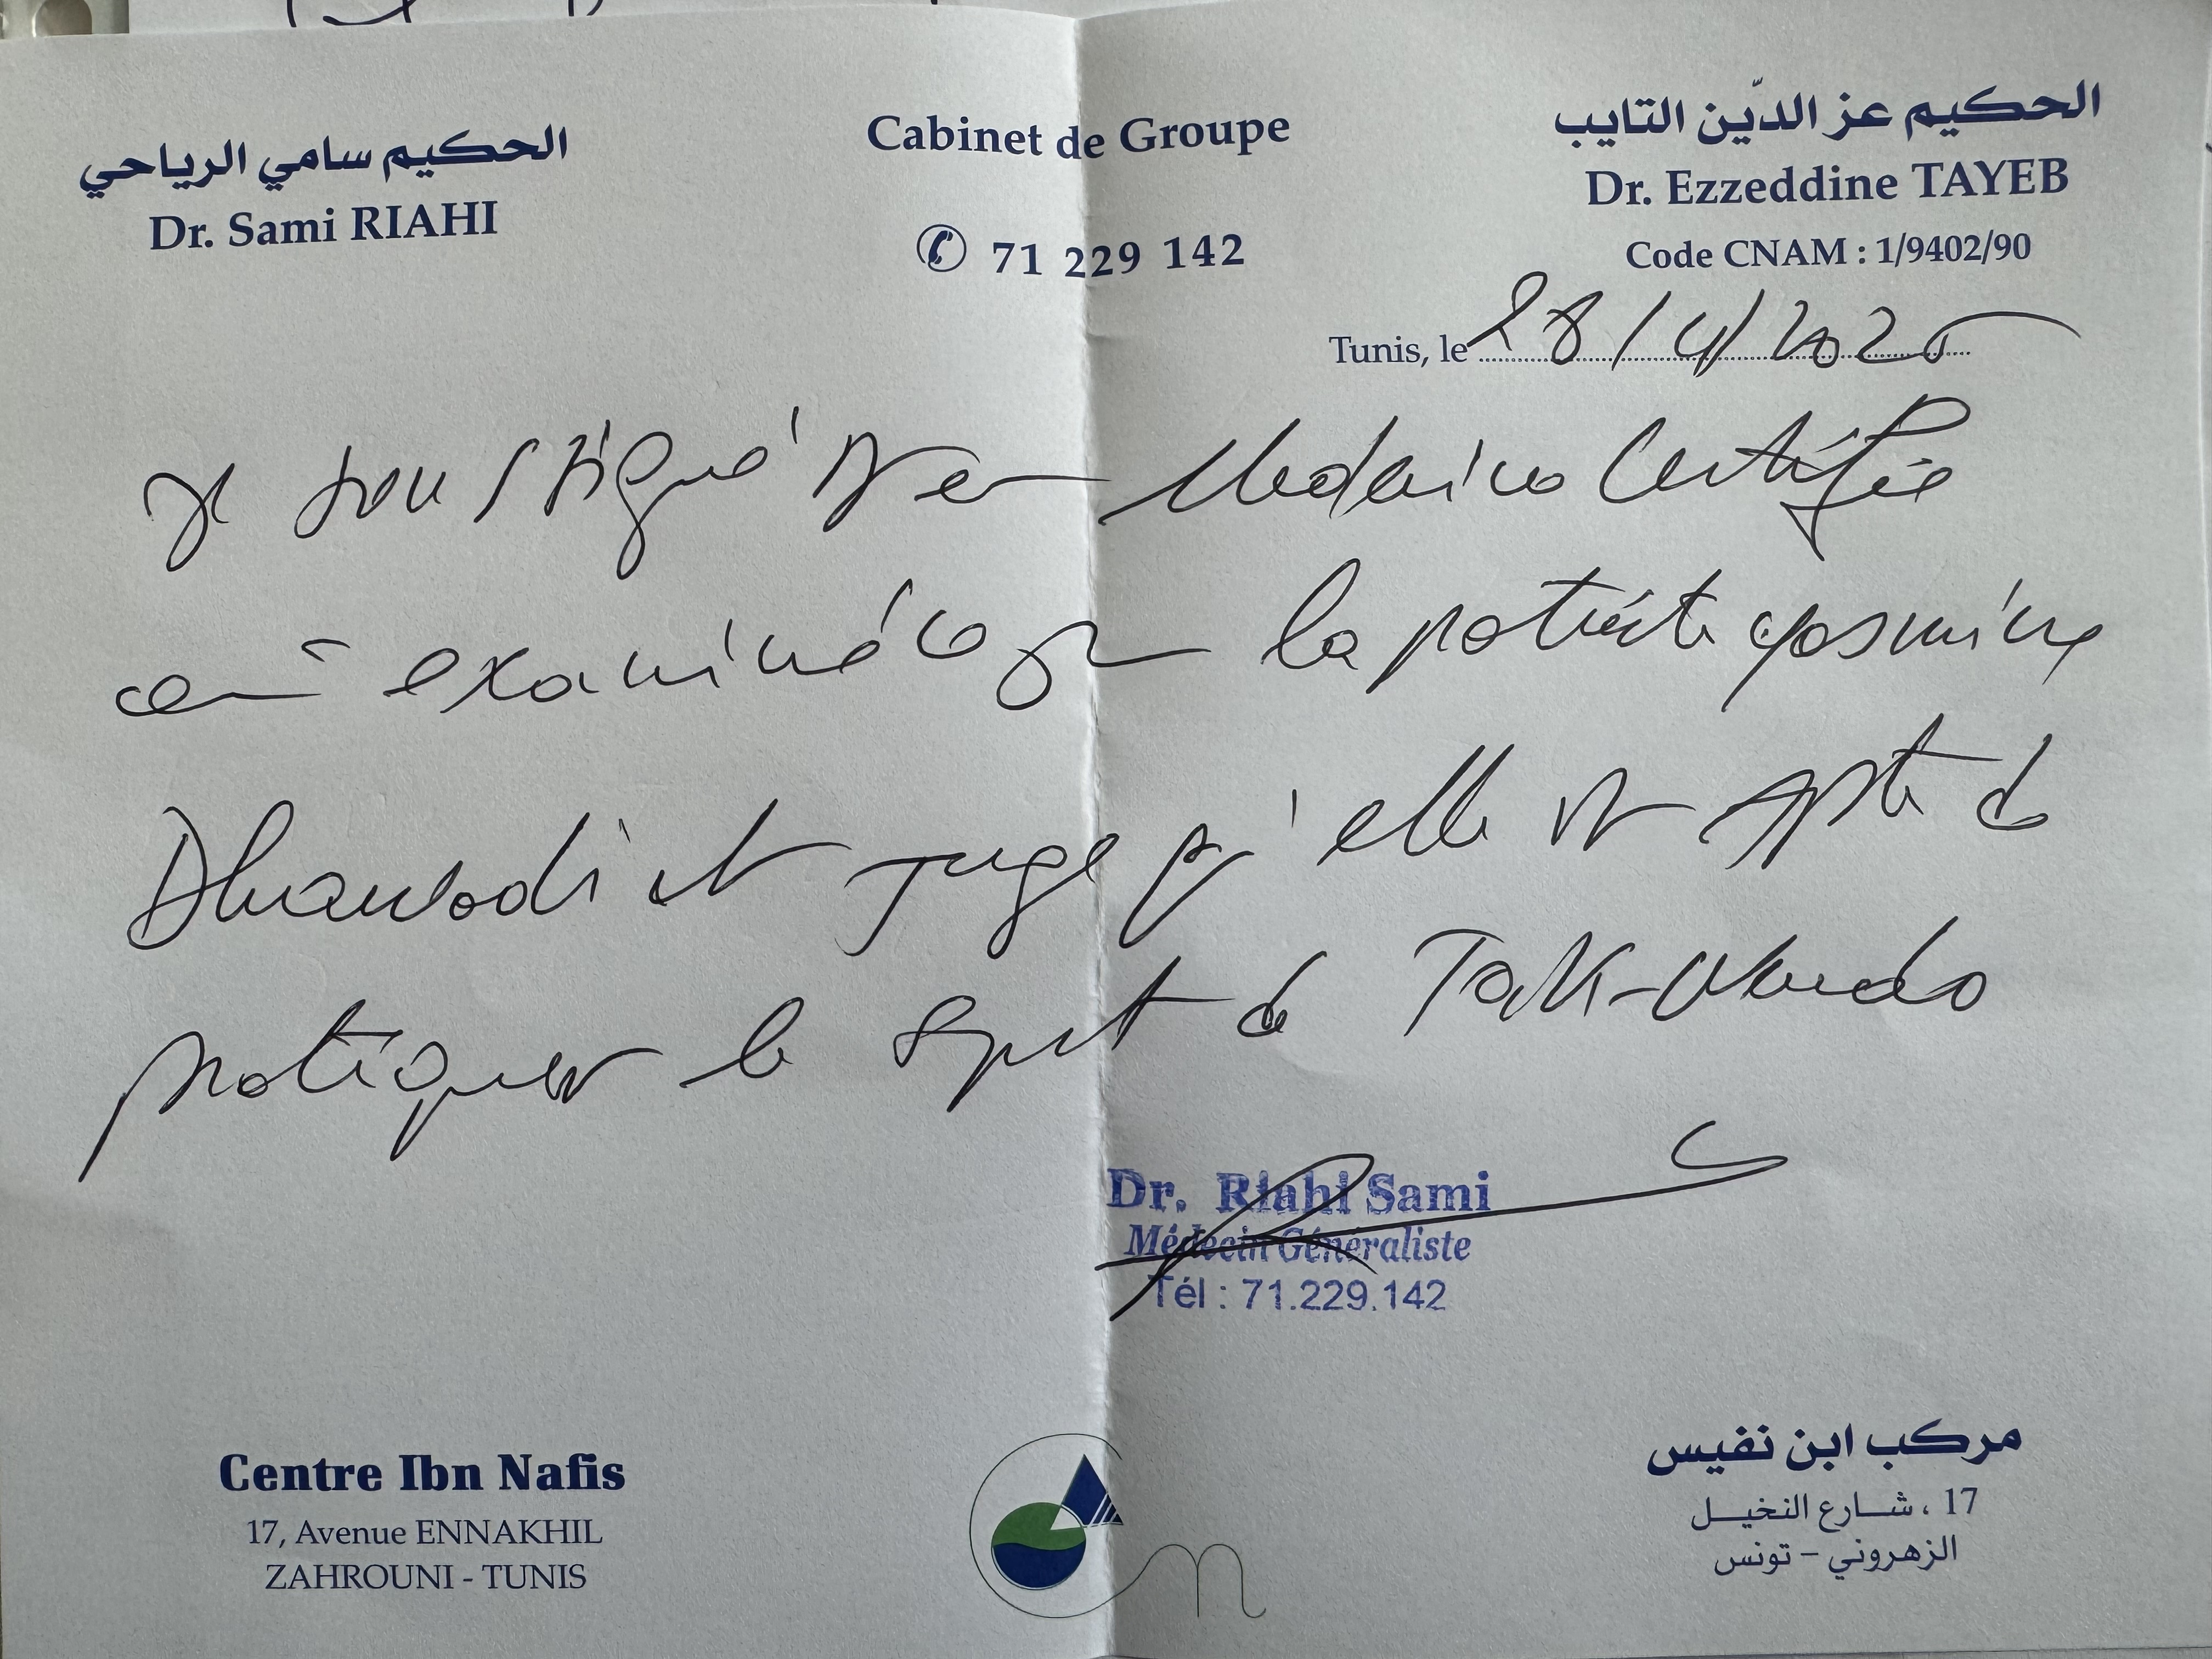 الحكيم سامي الرياحي
Dr. Sami RIAHI
Cabinet de Groupe
71 229 142
الحكيم عز الدّين التايب
Dr. Ezzeddine TAYEB
Code CNAM : 1/9402/90
Tunis, le 28/4/2025
Je soussigné Dr en Médecine Certifie
avoir examiné ce jour la patiente yosmine
Dhawadi et juge qu'elle est apte de
pratiquer le sport de Taek-wondo
Dr. Riahi Sami
Médecin Généraliste
Tél : 71.229.142
Centre Ibn Nafis
17, Avenue ENNAKHIL
ZAHROUNI - TUNIS
مركب ابن نفيس
17 ، شارع النخيل
الزهروني - تونس